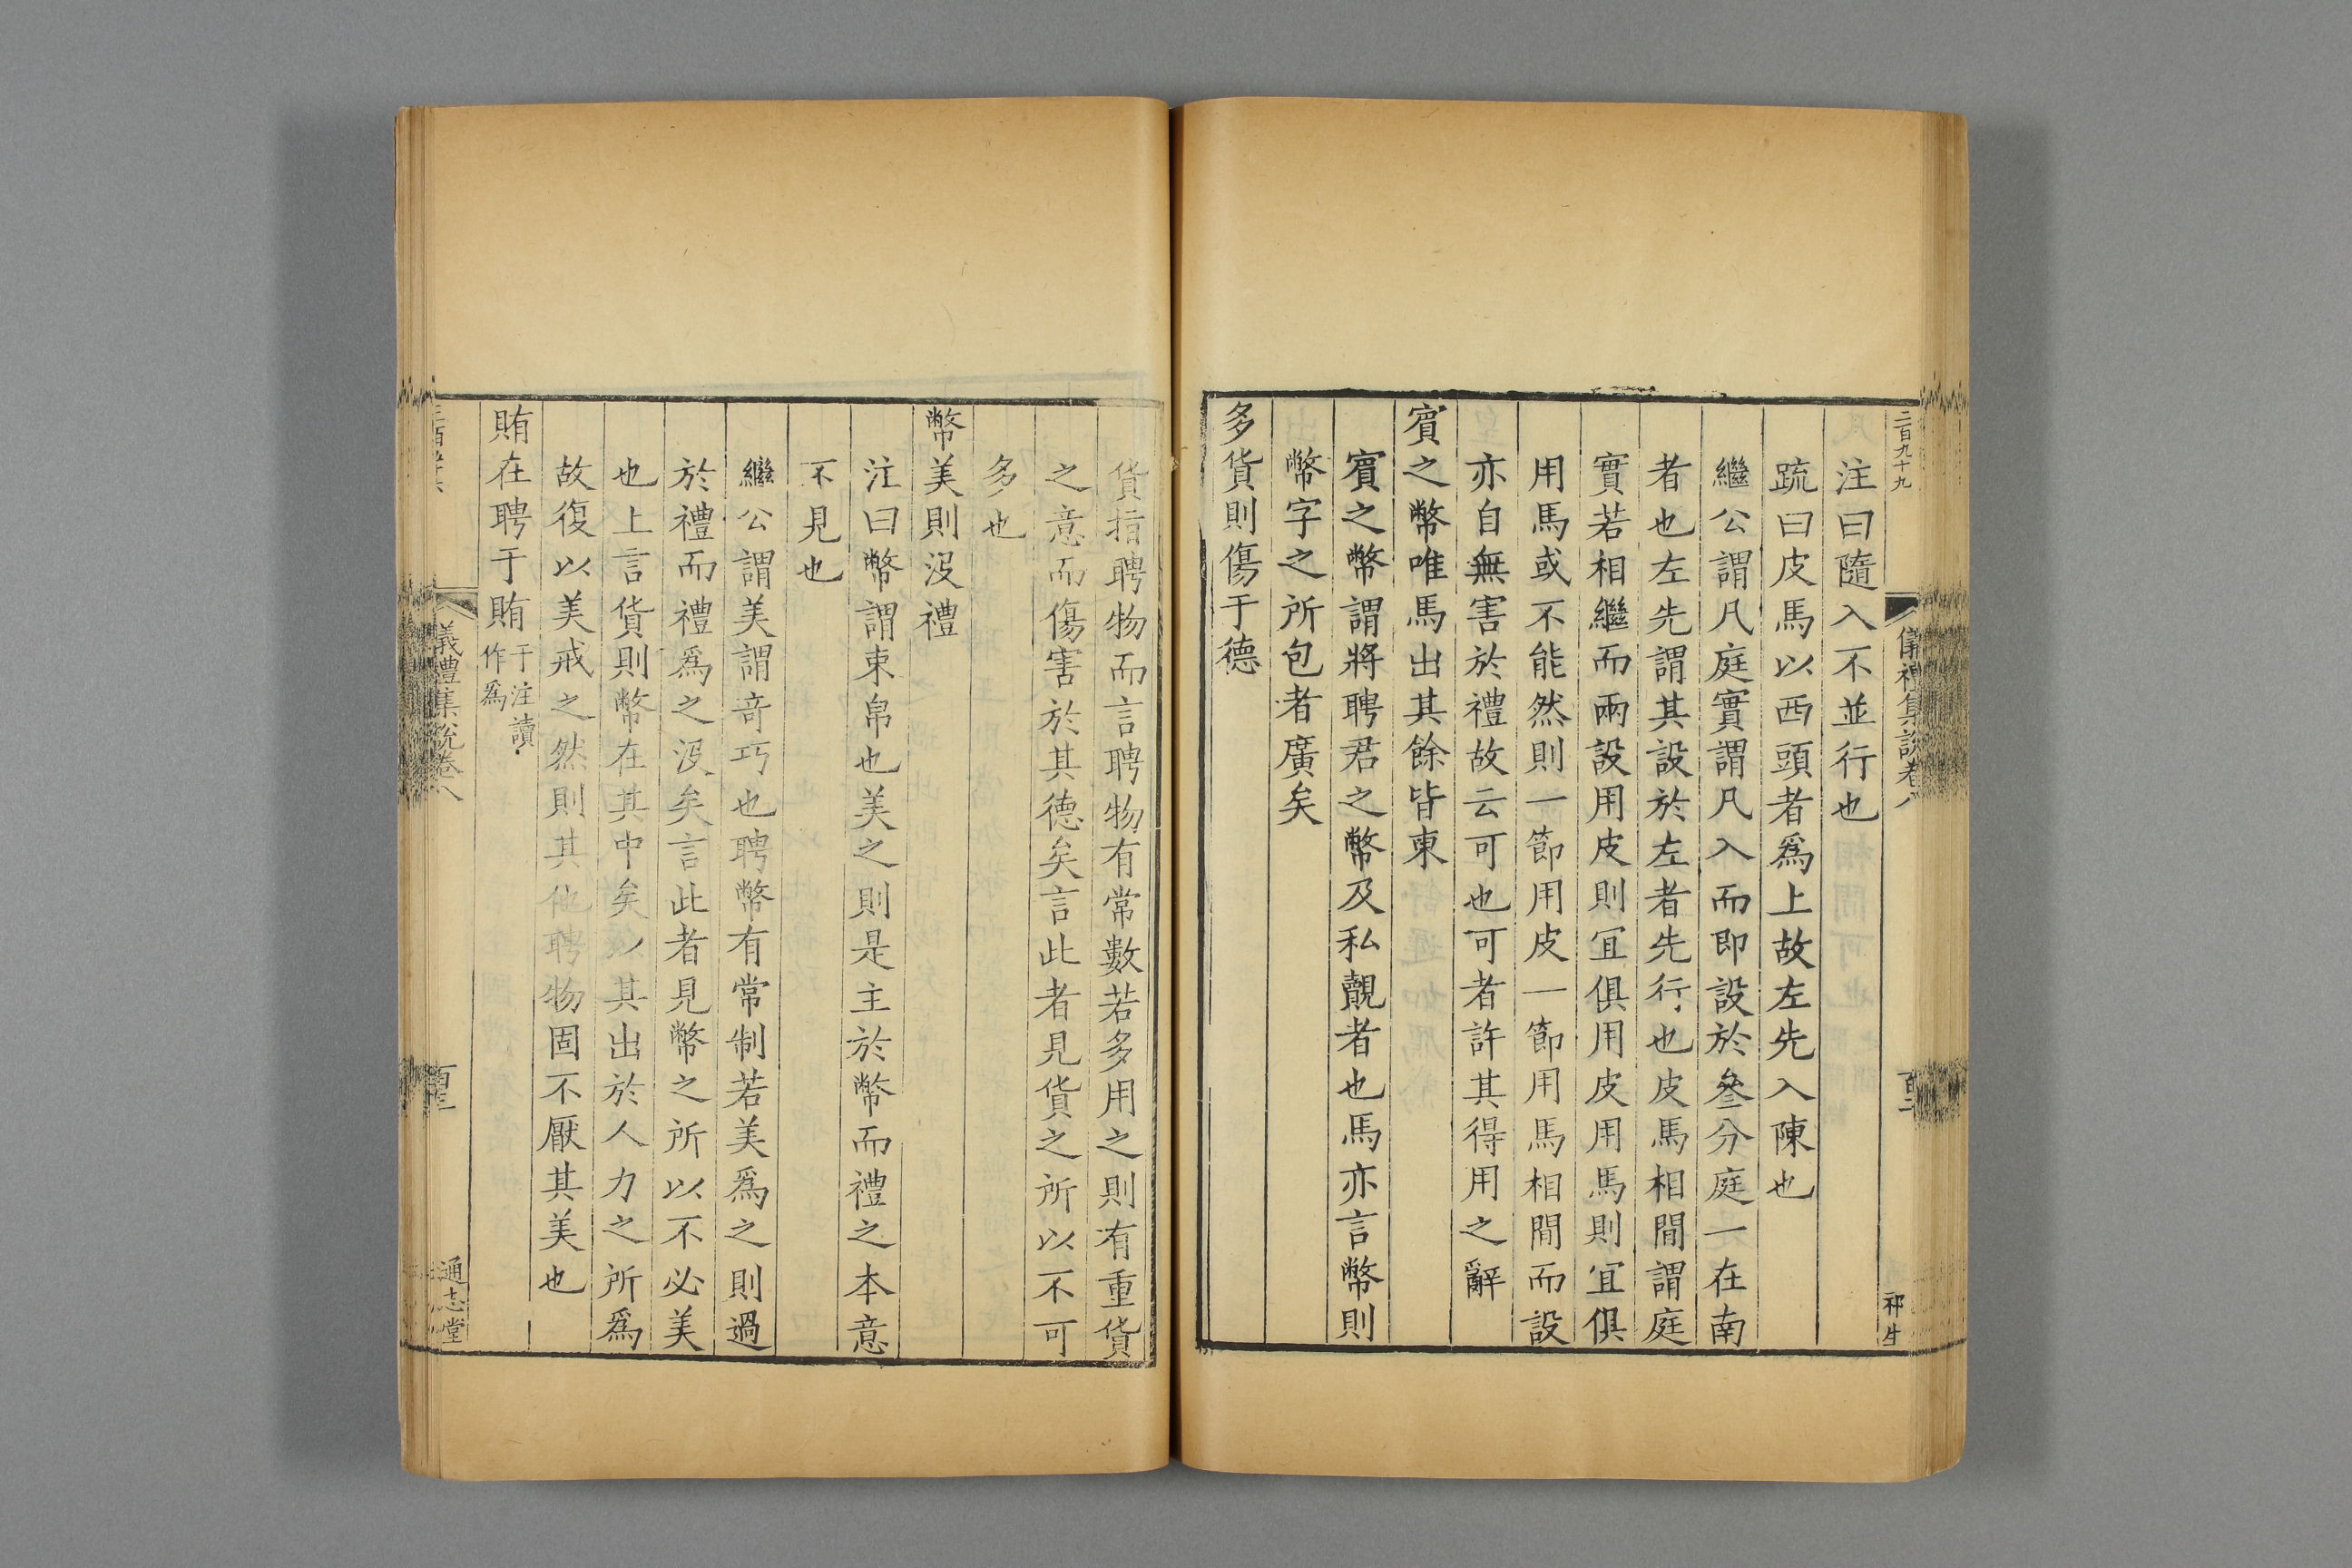 二百九十九
儀禮集說卷八
百二
祁生
注曰隨入不並行也
疏曰皮馬以西頭者爲上故左先入陳也
繼公謂凡庭實謂凡入而即設於參分庭一在南
者也左先謂其設於左者先行也皮馬相間謂庭
實若相繼而兩設用皮則宜俱用皮用馬則宜俱
用馬或不能然則一節用皮一節用馬相間而設
亦自無害於禮故云可也可者許其得用之辭
賓之幣唯馬出其餘皆東
賓之幣謂將聘君之幣及私覿者也馬亦言幣則
幣字之所包者廣矣
多貨則傷于德
貨指聘物而言聘物有常數若多用之則有重貨
之意而傷害於其德矣言此者見貨之所以不可
多也
幣美則沒禮
注曰幣謂束帛也美之則是主於幣而禮之本意
不見也
繼公謂美謂奇巧也聘幣有常制若美爲之則過
於禮而禮爲之沒矣言此者見幣之所以不必美
也上言貨則幣在其中矣以其出於人力之所爲
故復以美戒之然則其他聘物固不厭其美也
賄在聘于賄于注讀作爲
儀禮集說卷八
通志堂